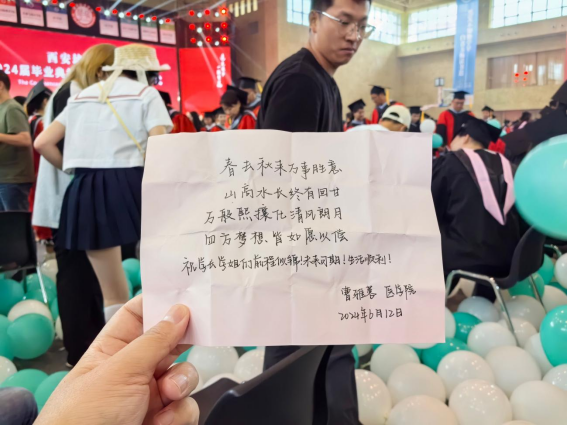 西安
2024届毕业典
春去秋来万事胜意
山高水长终有回甘
万般熙攘化清风朗月
四方梦想皆如愿以偿
祝学长学姐们前程似锦！未来可期！生活顺利！
医学院
2024年6月12日